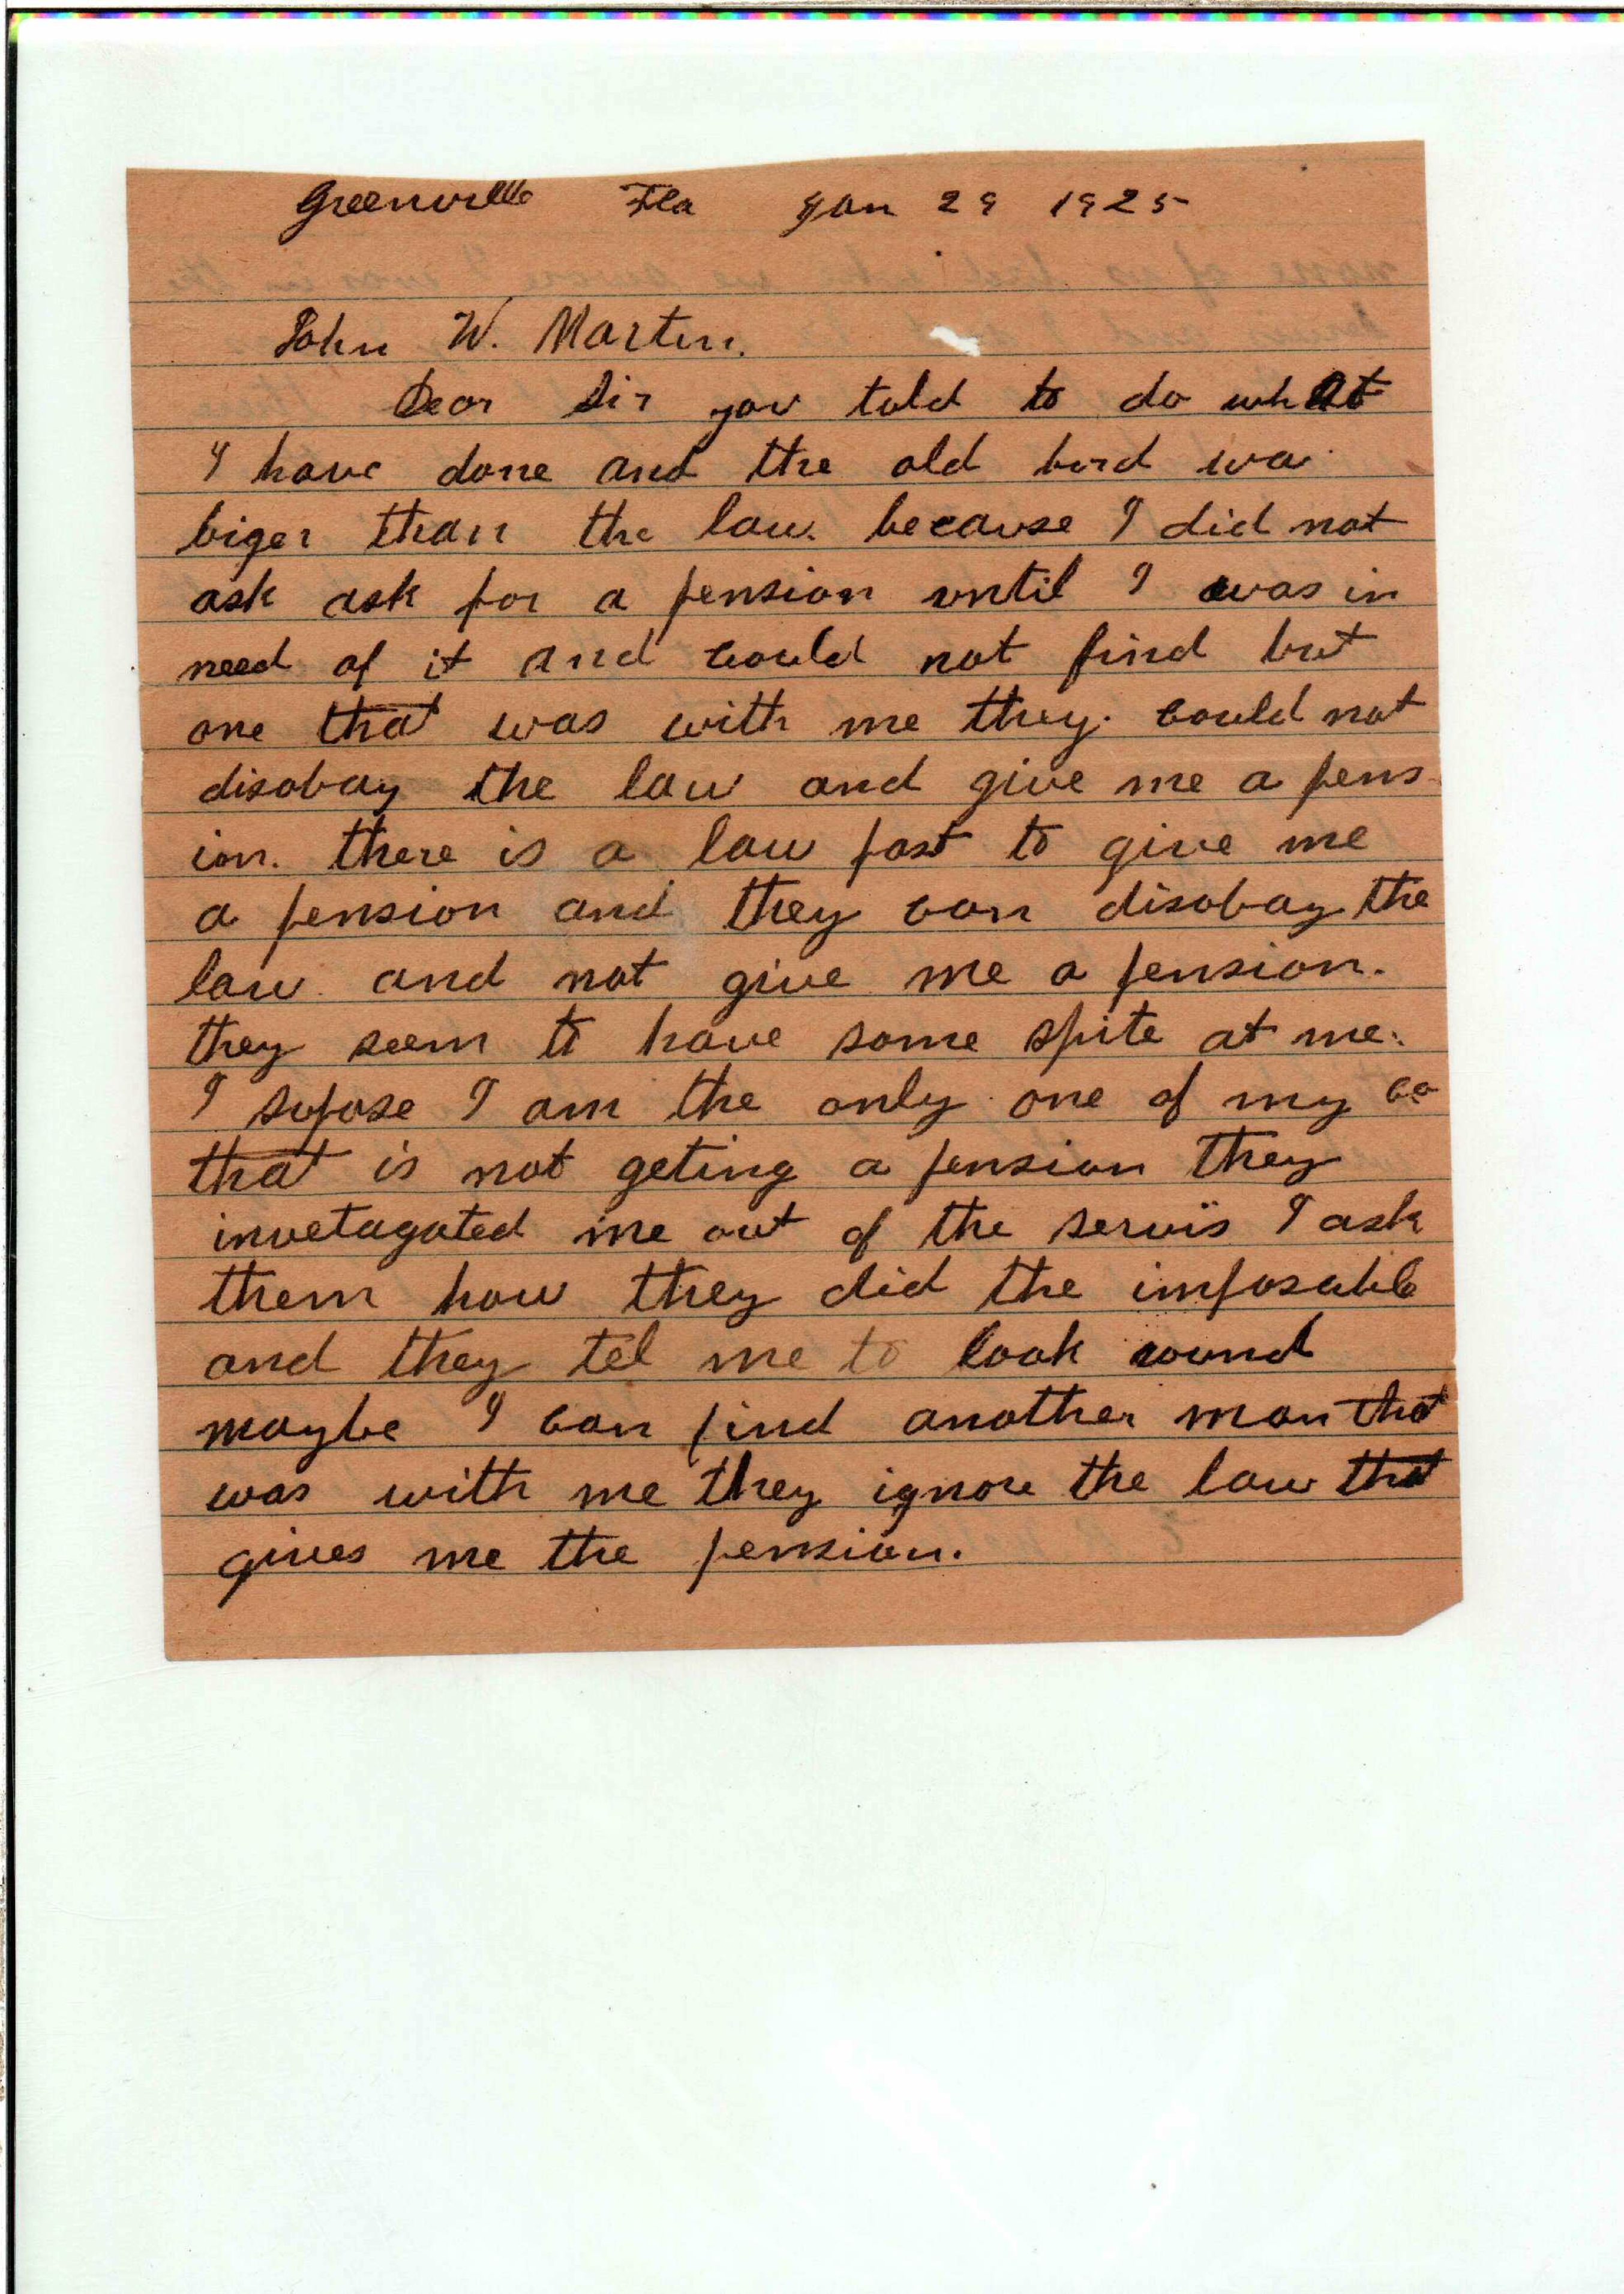 Greenville Fla Jan 29 1925
John W. Martin.
Dear Sir you told to do what
I have done and the old bord wa
biger than the law. because I did not
ask ask for a pension until I was in
need of it and could not find but
one that was with me they. could not
disobay the law and give me a pens
ion. there is a law past to give me
a pension and they can disobay the
law and not give me a pension.
they seem to have some spite at me.
I supose I am the only one of my co
that is not geting a pension they
invetagated me out of the servis I ask
them how they did the imposable
and they tel me to look round
maybe I can find another man that
was with me they ignore the law that
gives me the pension.